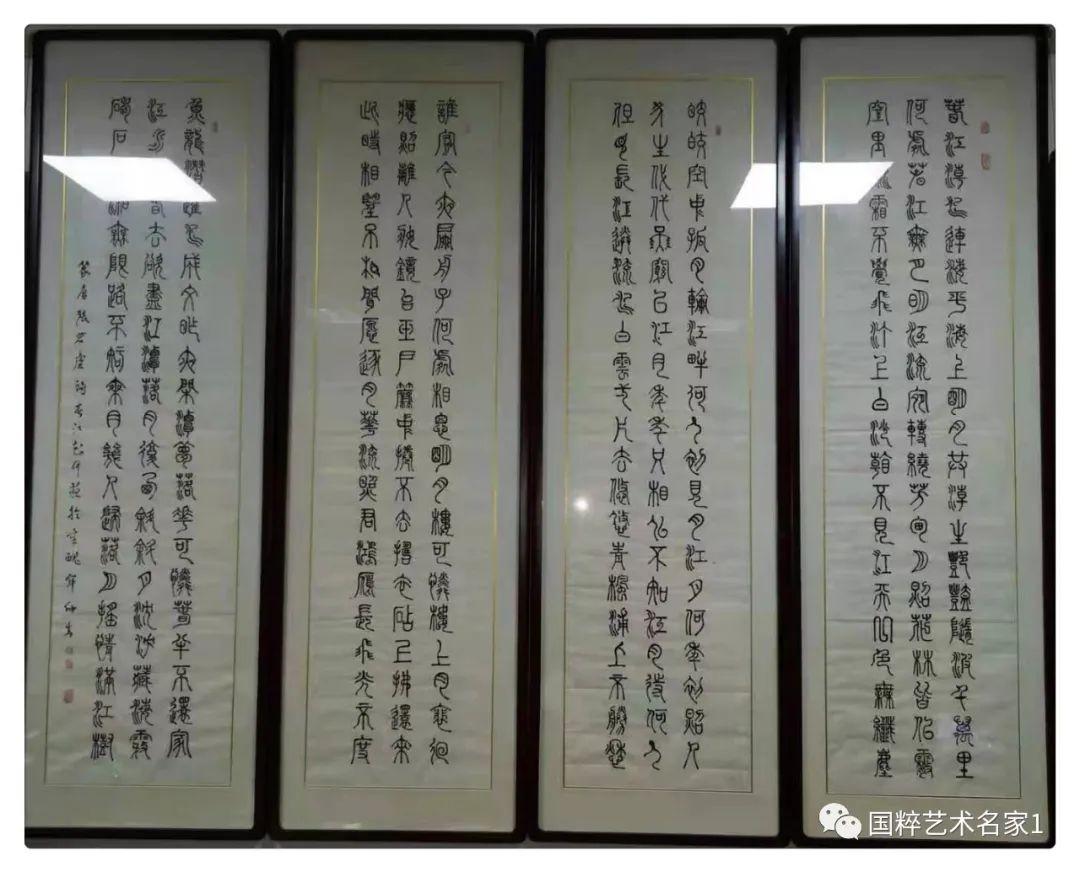 春江潮水連海平海上明月共潮生灩灩隨波千萬里
何處春江無月明江流宛轉繞芳甸月照花林皆似霰
空里流霜不覺飛汀上白沙看不見江天一色無纖塵
皎皎空中孤月輪江畔何人初見月江月何年初照人
人生代代無窮已江月年年只相似不知江月待何人
但見長江送流水白雲一片去悠悠青楓浦上不勝愁
誰家今夜扁舟子何處相思明月樓可憐樓上月裵徊
應照離人妝鏡臺玉戶簾中捲不去搗衣砧上拂還來
此時相望不相聞願逐月華流照君鴻雁長飛光不度
魚龍潛躍水成文昨夜閑潭夢落花可憐春半不還家
江水春去欲盡江潭落月復西斜斜月沈沈藏海霧
碣石湘無限路不知乘月幾人歸落月搖情滿江樹
篆唐張若虛詩春江
国粹艺术名家1